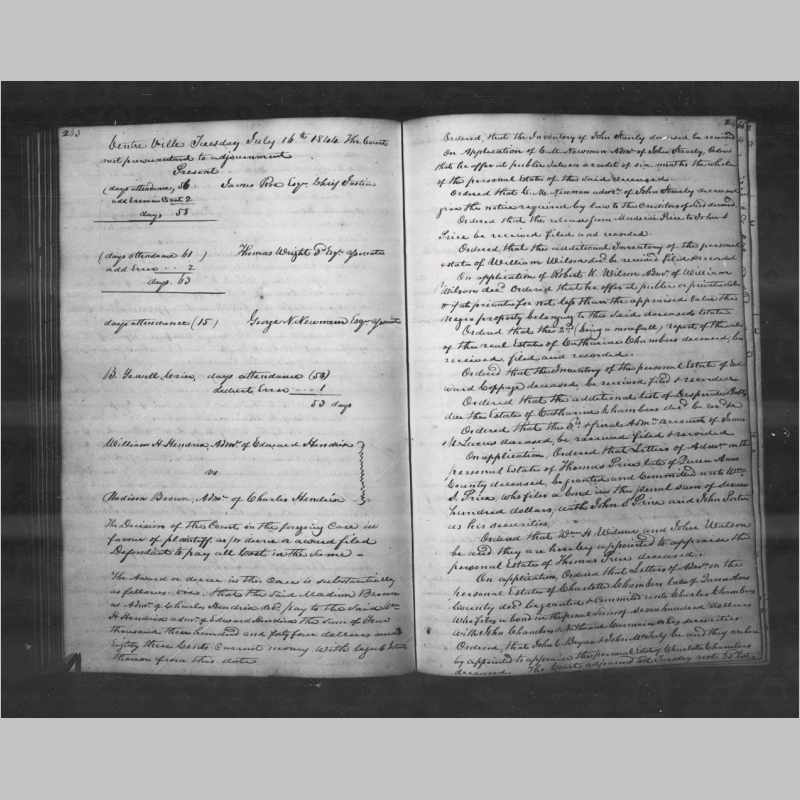 233
Centre Ville Tuesday July 16th 1844 The Court
met pursuant to adjournment
Present
(days attendance, 56 James Esqr Chief Justice
add 2
days 58
(days attendance 61) Thomas Wright 3d Esqr associate
add Error 2
days 63
days attendance (15) George N. Newnam Esqr associate
days attendance (54)
deduct Error 1
53 days
William H Hendrix, Admr of Edward Hendrix
vs
Madison Brown, Admr of Charles Hendrix
The Decision of the Court in the forgoing Case in
favour of plaintiff as pr decree or award filed
Defendant to pay all Cost in the same
The Award or decree in this Case is substantially
as follows. viz. that the said Madison Brown
as Admr of Charles Hendrix decd pay to the said Wm
H Hendrix admr of Edward Hendrix the Sum of
thousand three hundred and forty four dollars and
Eighty three Cents Current money with legal Interest
thereon from this date
Ordered, that the Inventory of John Stanly decd be received
On Application of C. M. Newman Admr of John Stanly, Ordered
that he offer at public sale on a credit of six months the whole
of the personal Estate of the said deceased
Ordered that C. M. Newman admr. of John Stanly deceased
give the notice required by law to the Creditors of said deceased
Ordered that the release from Price to John S
Price be received filed and recorded
Ordered that the additional Inventory of the personal
estate of William Wilson decd be received filed & recorded
On application of Robert K. Wilson Admr of William
Wilson decd Ordered that he offer at public or private sale
& if at private for not less than the appraised Value the
Negro property belonging to the said deceaseds Estate
Ordered that the 2nd (being a non full) report of the sale
of the real Estate of Catharine Chambers deceased, be
received filed and recorded.
Ordered that the Inventory of the personal Estate of Ed
ward Coppage deceased be received filed & recorded
Ordered that the additional list of desperate Debts
due the Estate of Catharine Chambers decd be
Ordered that the 2d & final Admn account of
deceased, be received filed & recorded
On application, Ordered that Letters of Admn on the
personal Estate of Thomas Price late of Queen Anns
County deceased, be granted and Committed unto Wm
S. Price, who files a bond in the penal sum of
hundred dollars, with John S Price and John
as his securities,
Ordered that Wm H. and John Watson
be and they are hereby appointed to appraise the
personal Estate of Thomas Price deceased.
On application, Ordered that Letters of Admn on the
personal Estate of Charlotte Chambers late of Queen Anns
County decd be granted & committed unto Charles Chambers
who files a bond in the penal sum of hundred dollars
with John Chambers & his securities
Ordered, that John C. Bryan & John be and they are here
by appointed to appraise the personal Estate of Charlotte Chambers
deceased. The Court adjourned till Tuesday next